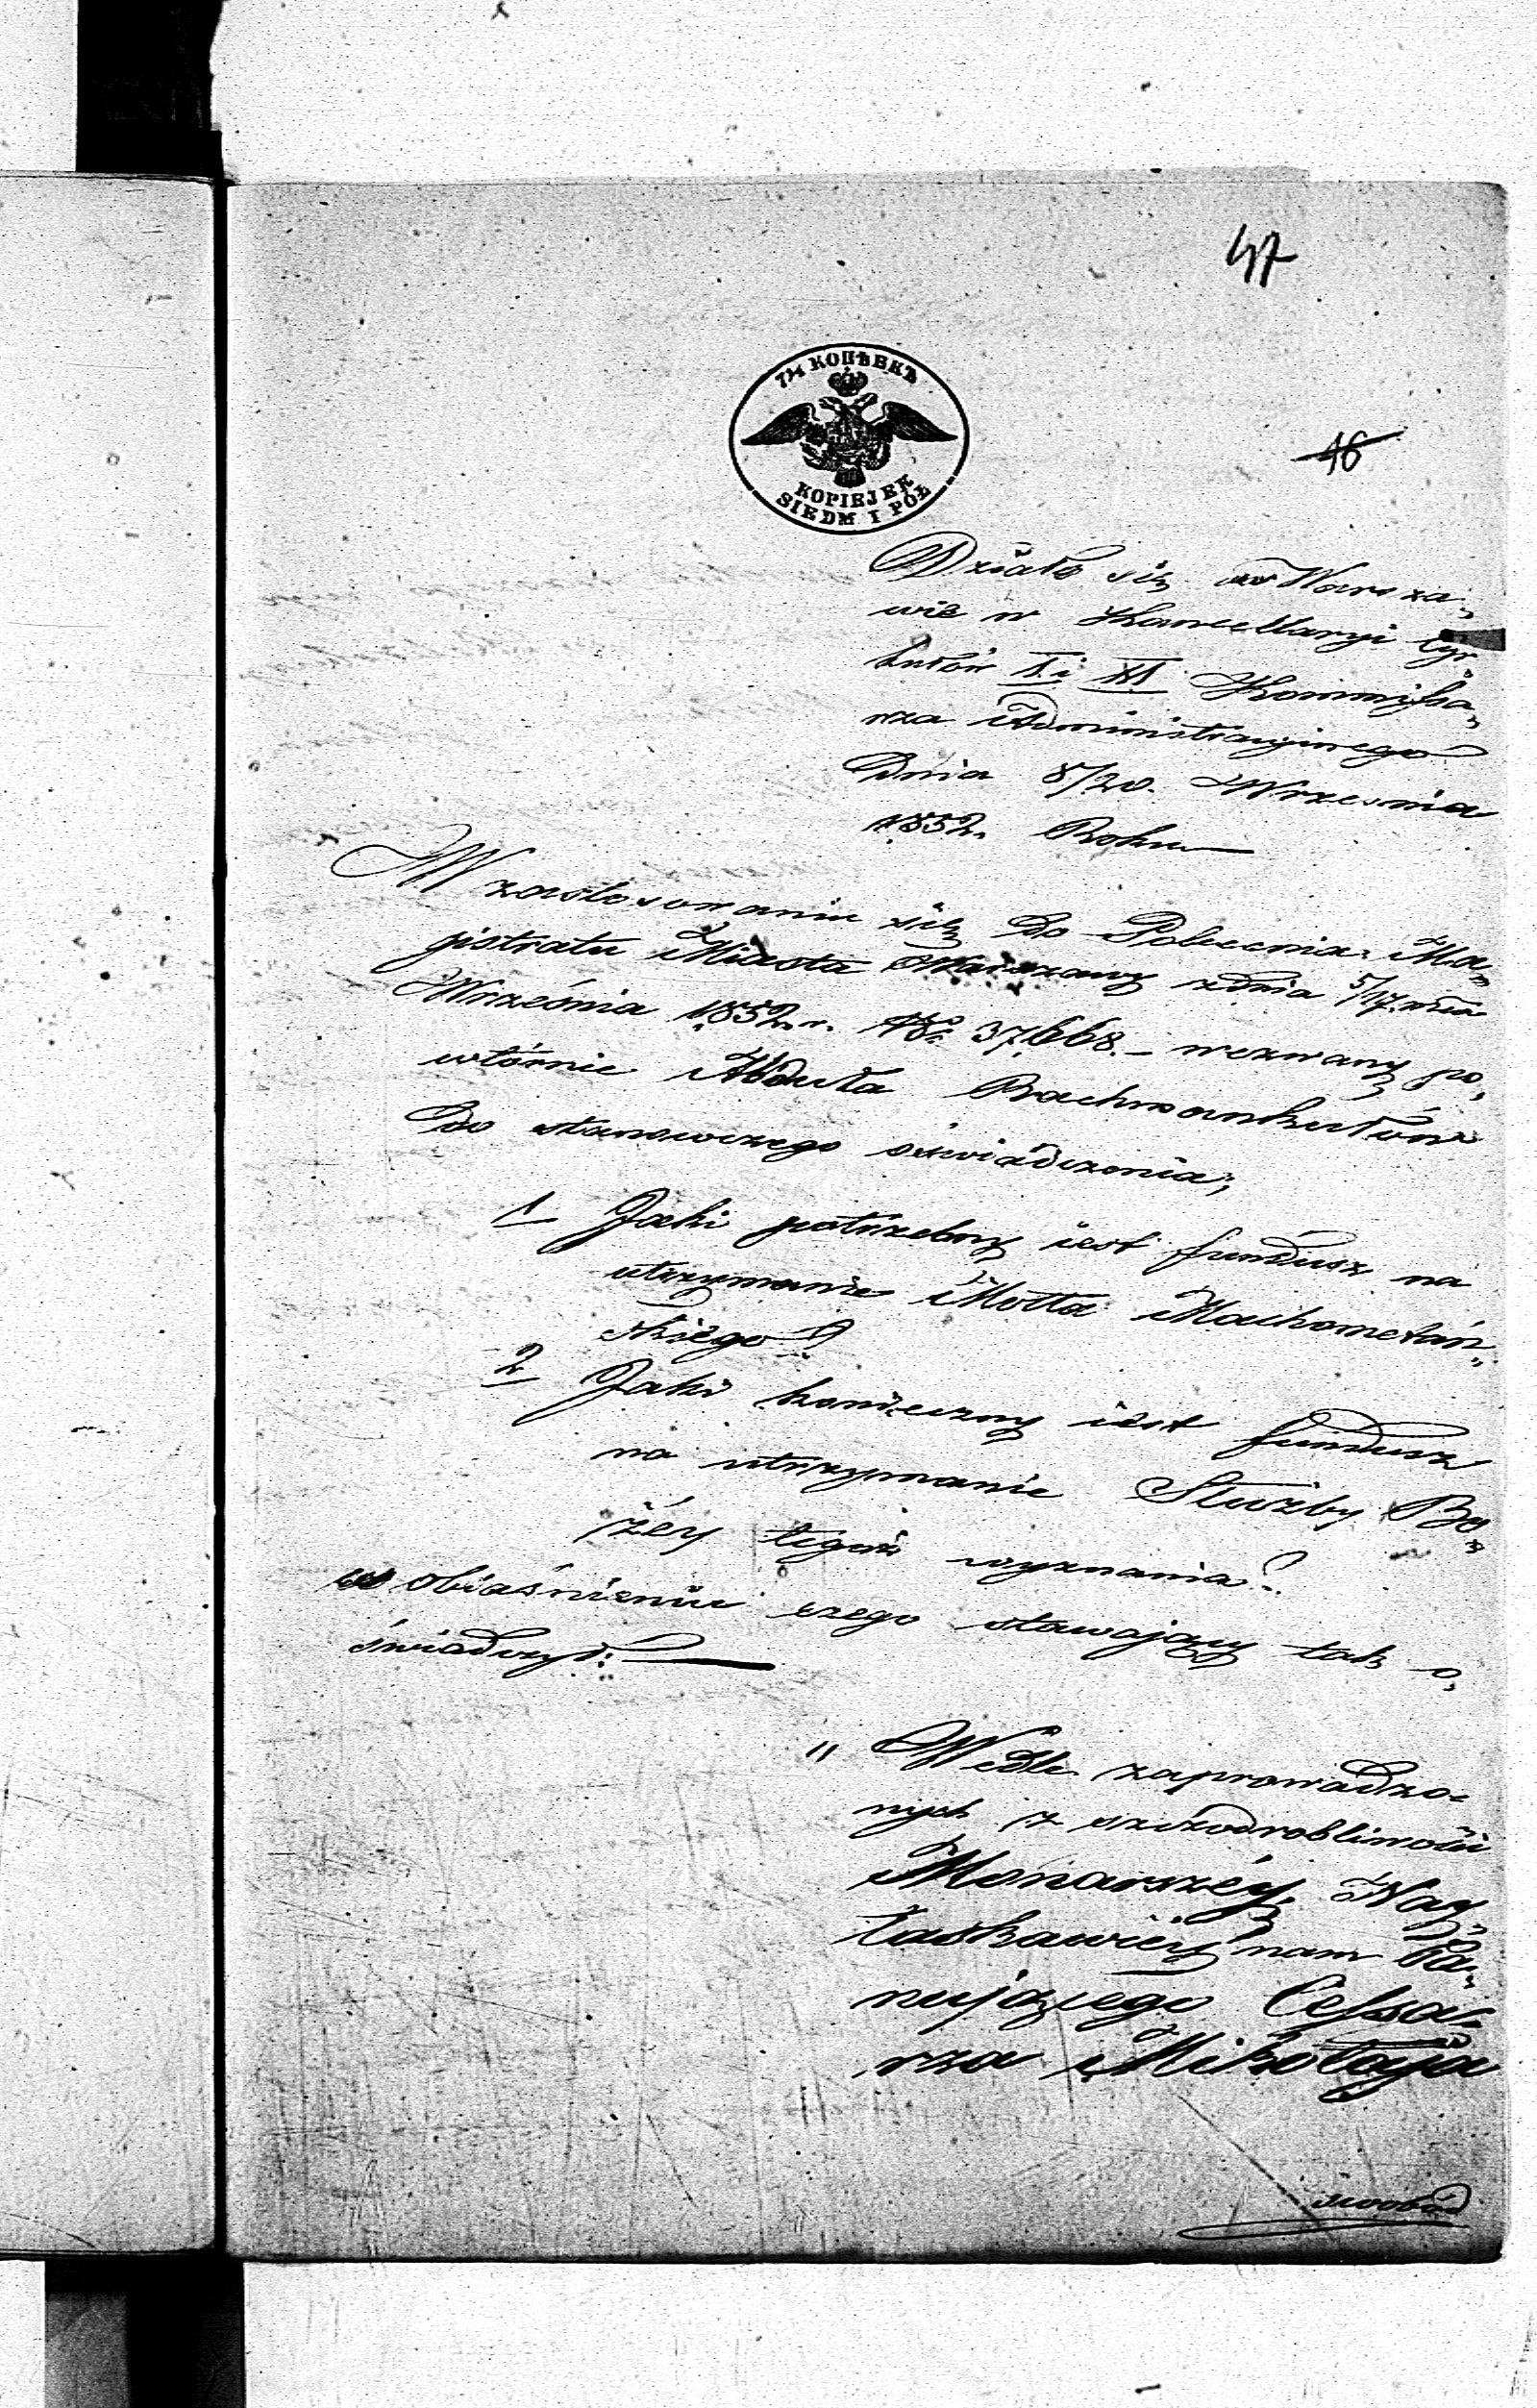 47
7½ КОПѢЕКЪ
KOPIEJEK
SIEDM I PÓŁ
16
Działo się w Warsza„
wie w Kancellaryi Cyr„
kułów X i XI Kommissa„
rza Administracyinego
Dnia 8/20. Września
1852. Roku
W zastosowaniu się do Polecenia Ma„
gistratu Miasta Warszawy zdnia 5/17. mca
Września 1852. r. No 37,668. – wezwany po„
wtórnie Abduła Rachmankułow
do stanowczego oświadczenia;
1 Jaki potrzebny iest fundusz na
utrzymanie Mołła Machometań„
skiego?
2 Jaki konieczny iest fundusz
na utrzymanie Służby Bo„
żéy tegoż wyznania?
w obiaśnieniu czego stawający tak o„
świadczył:
„ Wedle zaprowadzo„
nych z szczodrobliwości
Monarszéy Nay„
łaskawiéy nam Pa„
nującego Cessa„
rza Mikołaja
swobód